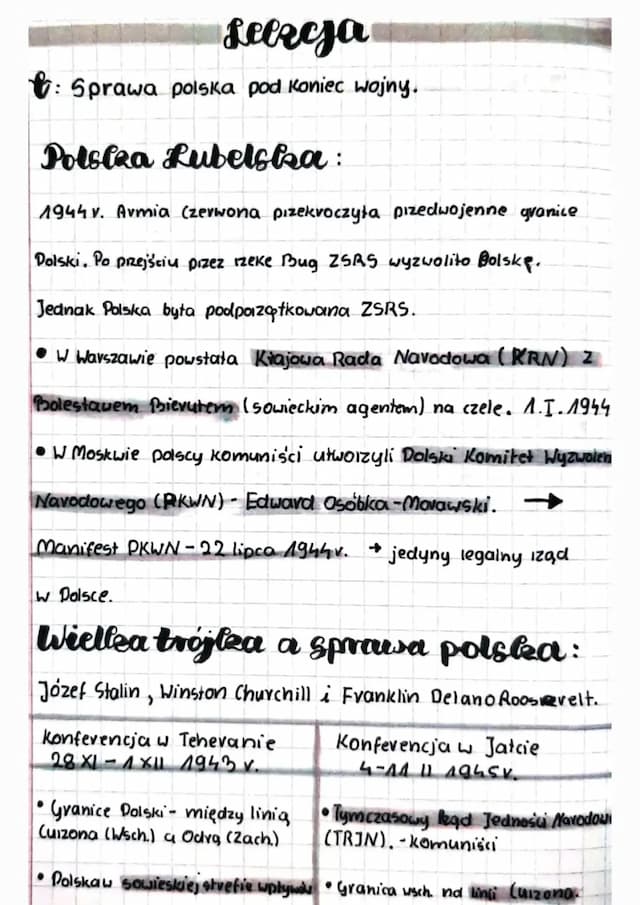 Lekcja
t: Sprawa polska pod koniec wojny.
Polska Lubelska:
1944 r. Armia Czerwona przekroczyła przedwojenne granice
Polski. Po przejściu przez rzeke Bug ZSRS wyzwoliło Polskę.
Jednak Polska była podporządkowana ZSRS.
• W Warszawie powstała Krajowa Rada Narodowa (KRN) z
Bolesławem Bierutem (sowieckim agentem) na czele. 1.I.1944
• W Moskwie polscy komuniści utworzyli Polski Komitet Wyzwolen
Narodowego (PKWN) - Edward Osóbka-Morawski. →
Manifest PKWN - 22 lipca 1944r. → jedyny legalny rząd
w Polsce.
Wielka trójka a sprawa polska:
Józef Stalin, Winston Churchill i Franklin Delano Roosevelt.
Konferencja w Teheranie
28 XI - 1 XII 1943 r.
• Granice Polski - między linią
Curzona (Wsch.) a Odrą (Zach.)
• Polska w sowieskiej strefie wpływów
Konferencja w Jałcie
4-11 II 1945r.
• Tymczasowy Rząd Jedności Narodow
(TRJN). - komuniści
• Granica wsch. na linii Curzona.